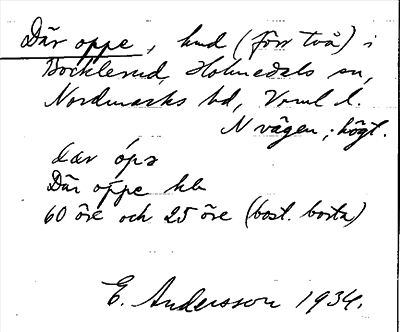 Där oppe, hmd (förr två) i
Bocklerud, Holmedals sn,
Nordmarks hd, Vrml l.
N vägen; högt.
dær óps
Där oppe hb
60 öre och 25 öre (bost. borta)
E. Andersson 1934.